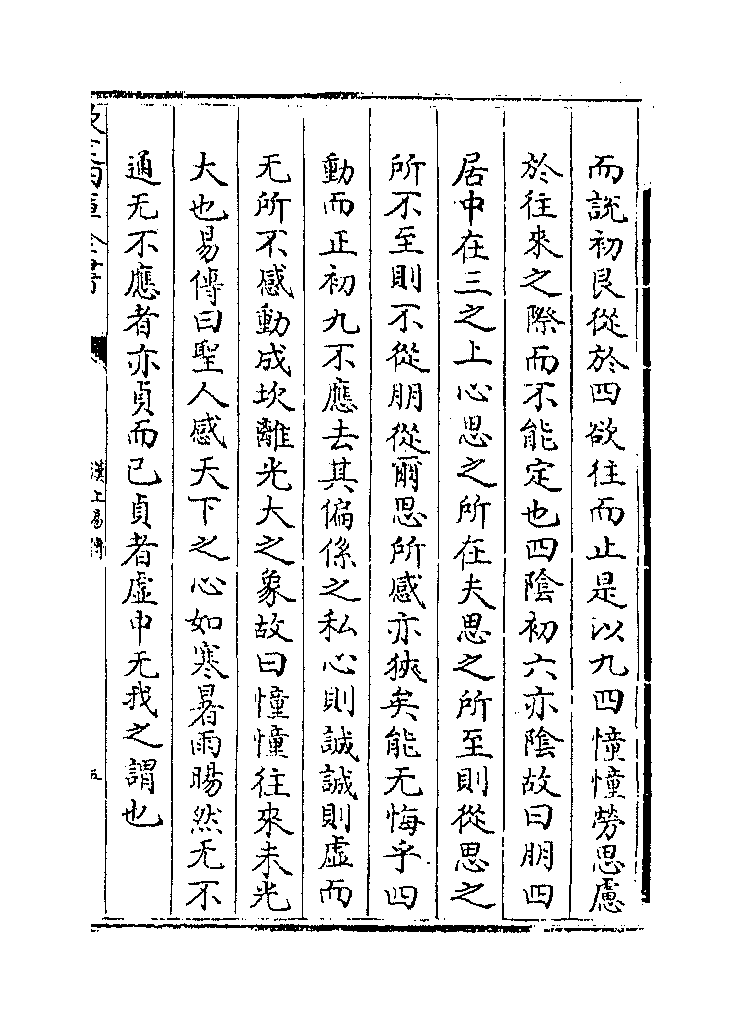 而說初艮從於四欲往而止是以九四憧憧勞思慮
於往來之際而不能定也四陰初六亦陰故曰朋四
居中在三之上心思之所在夫思之所至則從思之
所不至則不從朋從爾思所感亦狹矣能无悔乎四
動而正初九不應去其偏係之私心則誠誠則虛而
无所不感動成坎離光大之象故曰憧憧往來未光
大也易傳曰聖人感天下之心如寒暑雨暘然无不
通无不應者亦貞而已貞者虛中无我之謂也
漢上易傳
五